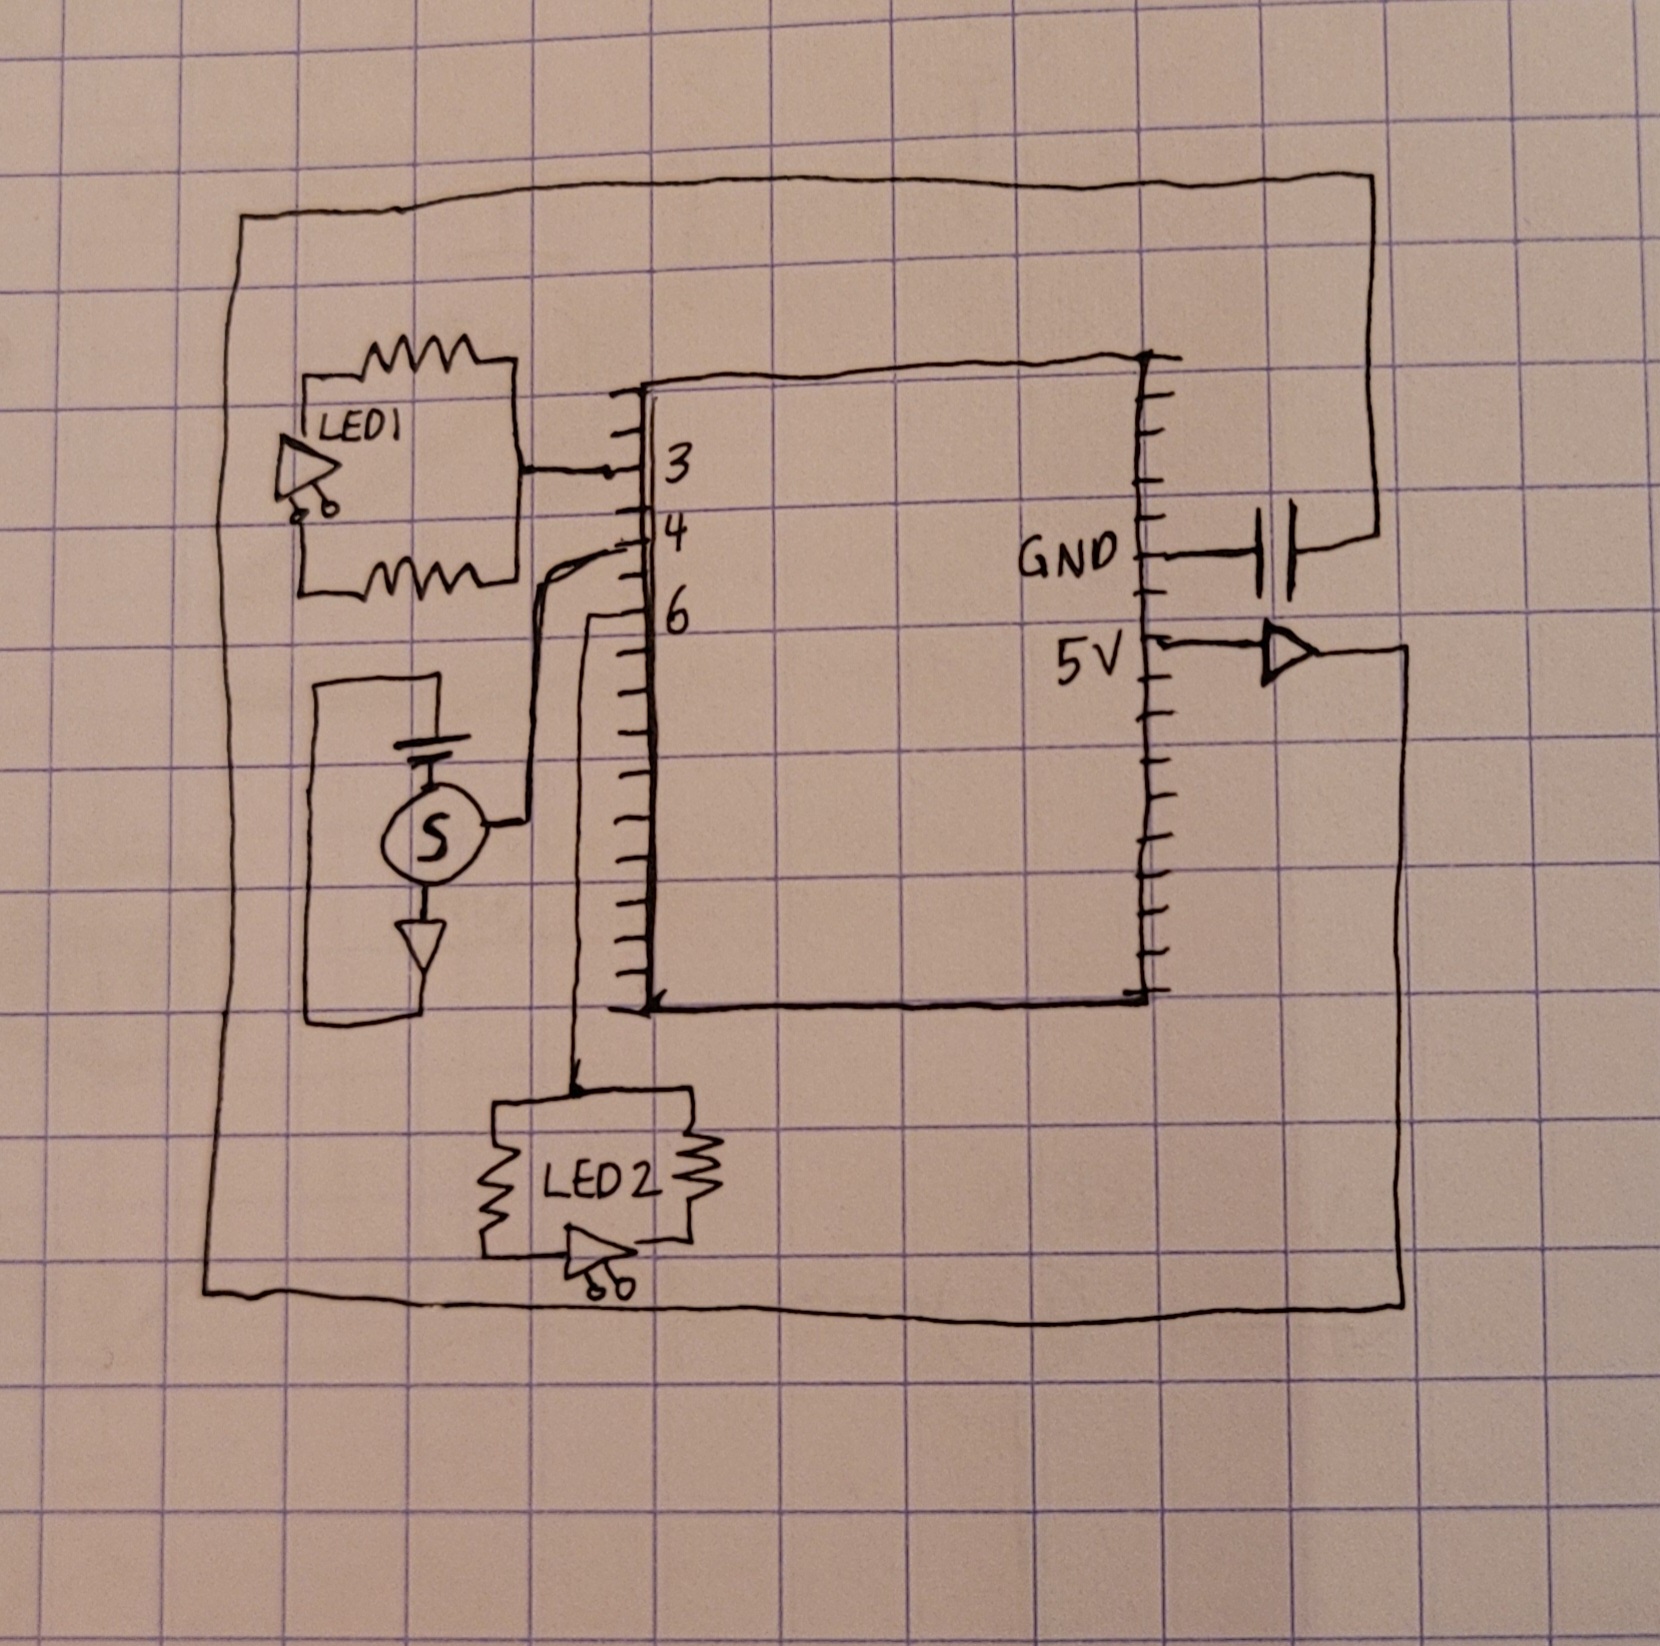 LED1
3
4
GND
6
5V
S
LED2